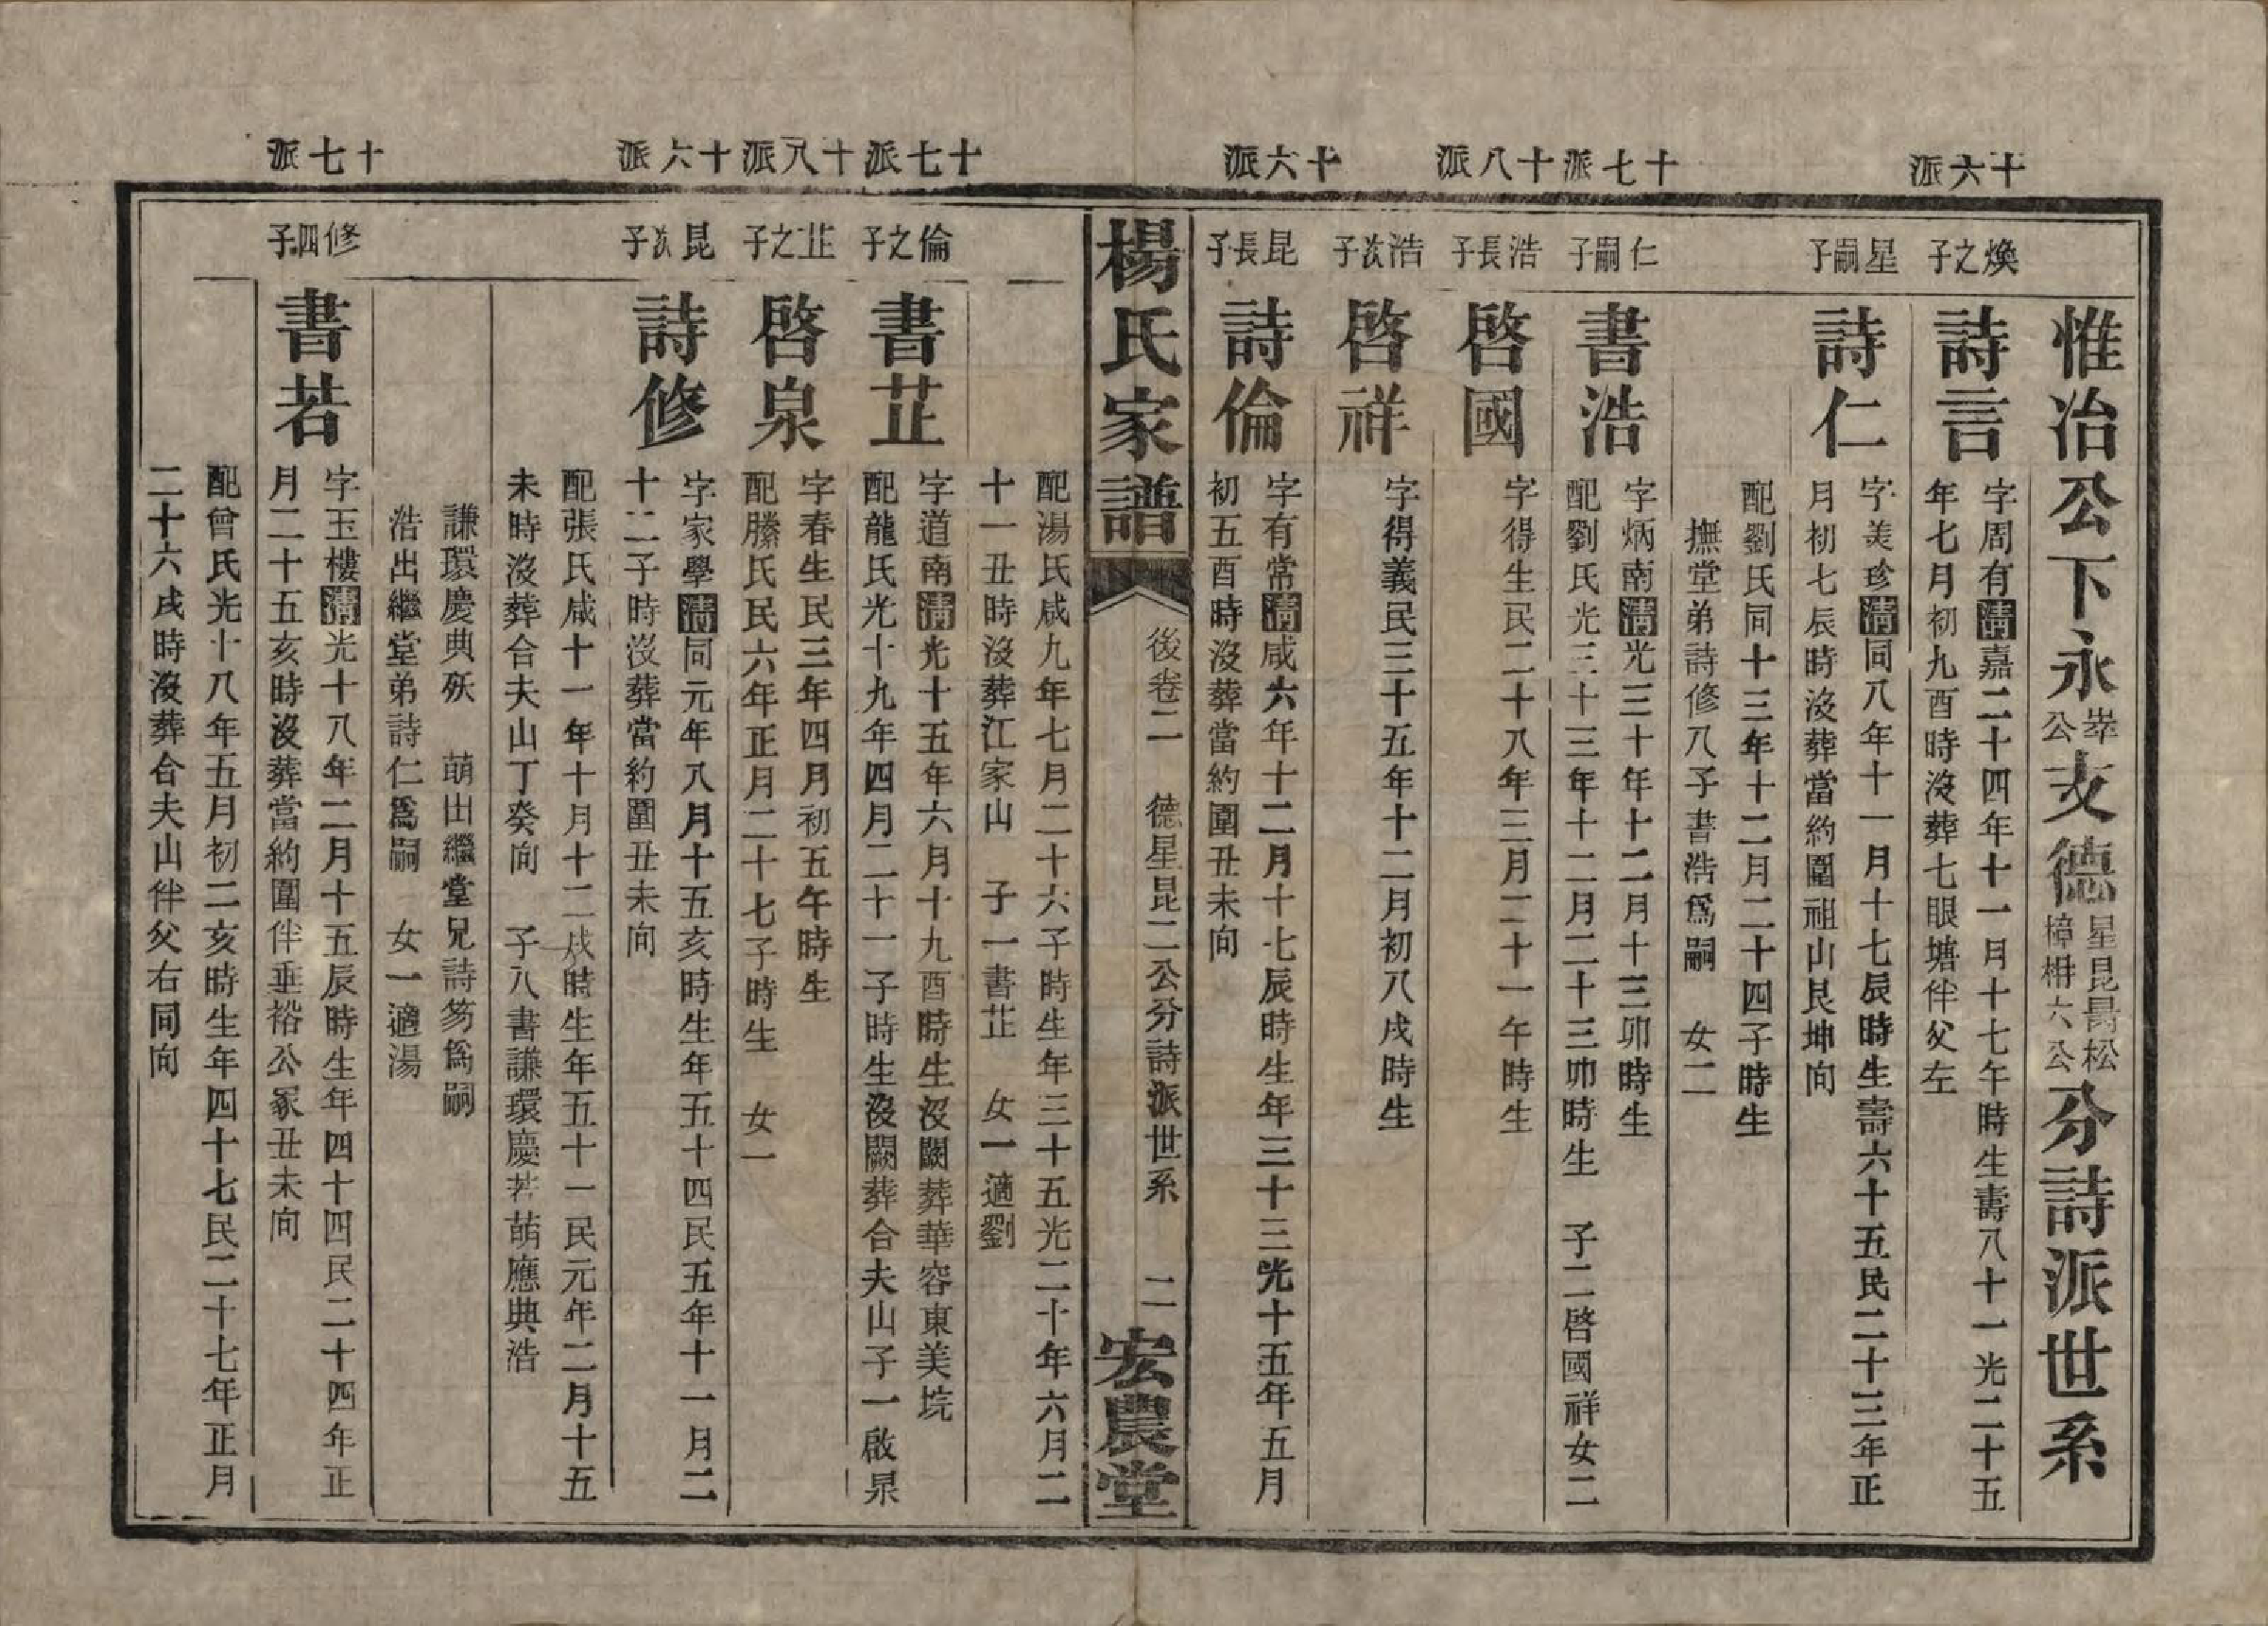 惟冶公下永崋公支德星昆晨松樟枏六公分詩派世系
十六派
煥之子
詩言
字周有清嘉二十四年十一月十七午時生壽八十一光二十五
年七月初九酉時沒葬七眼塘伴父左
星嗣子
詩仁
字美珍清同八年十一月十七辰時生壽六十五民二十三年正
月初七辰時沒葬當約圍祖山艮坤向
配劉氏同十三年十二月二十四子時生
撫堂弟詩修八子書浩爲嗣　女二
十七派
仁嗣子
書浩
字炳南清光三十年十二月十三卯時生
配劉氏光三十三年十二月二十三卯時生　子二啓國祥女二
十八派
浩長子
啓國
字得生民二十八年三月二十一午時生
浩次子
啓祥
字得義民三十五年十二月初八戌時生
十六派
昆長子
詩倫
字有常清咸六年十二月十七辰時生年三十三光十五年五月
初五酉時沒葬當約圍丑未向
楊氏家譜
後卷二　德星昆二公分詩派世系　二
宏農堂
配湯氏咸九年七月二十六子時生年三十五光二十年六月二
十一丑時沒葬江家山　子一書芷　女一適劉
十七派
倫之子
書芷
字道南清光十五年六月十九酉時生沒闕葬華容東美垸
配龍氏光十九年四月二十一子時生沒闕葬合夫山子一啟泉
十八派
芷之子
啓泉
字春生民三年四月初五午時生
配縢氏民六年正月二十七子時生　女一
十六派
昆次子
詩修
字家學清同元年八月十五亥時生年五十四民五年十一月二
十二子時沒葬當約圍丑未向
配張氏咸十一年十月十二戌時生年五十一民元年二月十五
未時沒葬合夫山丁癸向　子八書謙環慶若萌應典浩
謙環慶典殀　萌出繼堂兄詩笏爲嗣
浩出繼堂弟詩仁爲嗣　女一適湯
十七派
修四子
書若
字玉樓清光十八年二月十五辰時生年四十四民二十四年正
月二十五亥時沒葬當約圍伴垂裕公冢丑未向
配曾氏光十八年五月初二亥時生年四十七民二十七年正月
二十六戌時沒葬合夫山伴父右同向